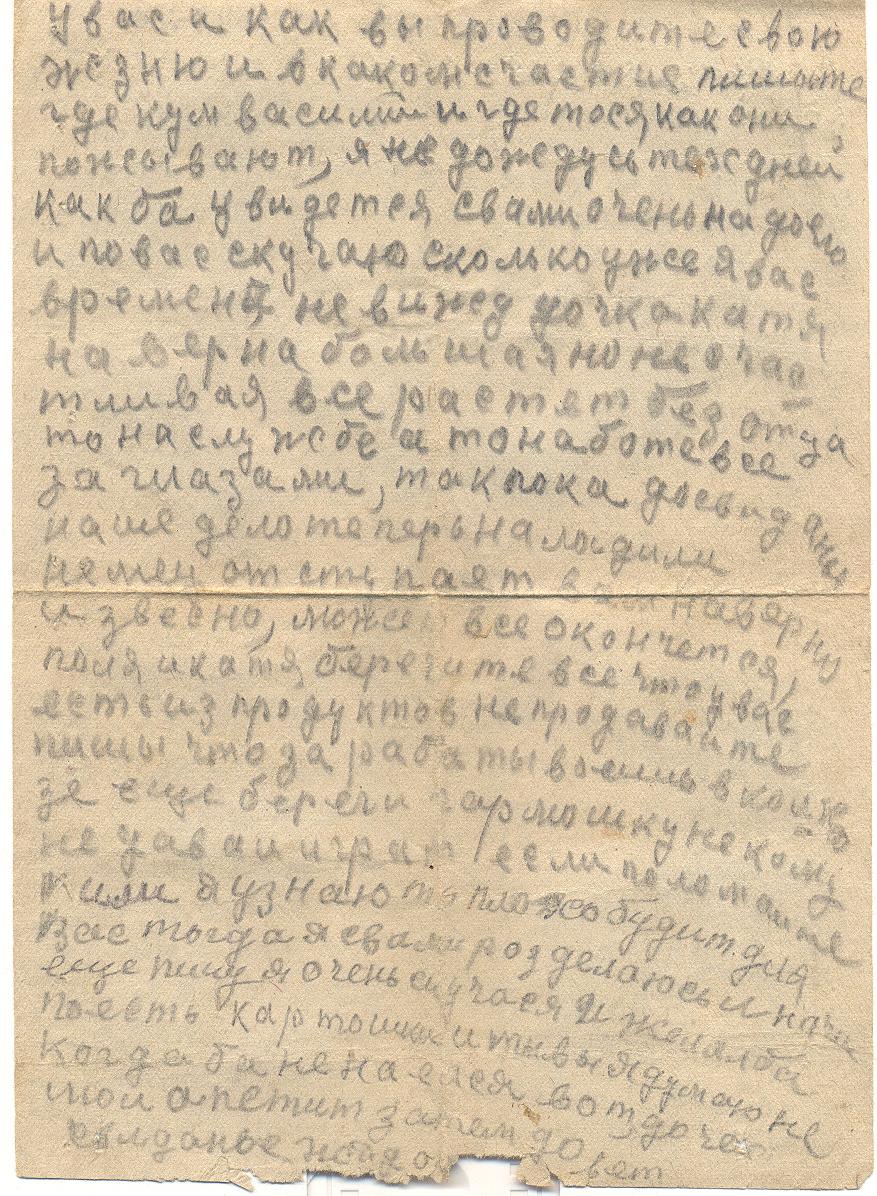 у вас и как вы проводите свою
жезню и в каком счастие пишите
где кум василий и где тося, как они
пожывают, я не дождусь тех дней
как ба увидется с вами очень надоело
и по вас скучаю сколько уже я вас
времени не вижед дочка катя
наверна большая но не счас
тливая все растет без отца
то на службе а то наботе все
за глазами, так пока досвиданья
наше дело теперь наладили
немец отступает вам наверну
извесно, может все окончется,
поля и катя берегите все что у вас
есть из продуктов не продавайте
пишы что зарабатываешь в колхо
зе еще береги гармошку не кому
не давай играт если поломаите
и я узнаю то плохо будит для
вас тогда я с вами розделаюсь и
еще пишу я очень скучася и желал ба
поесть картошки и я думаю не
когда ба не наелся вот до чего
мой апетит затем до
свиданье жду ответ